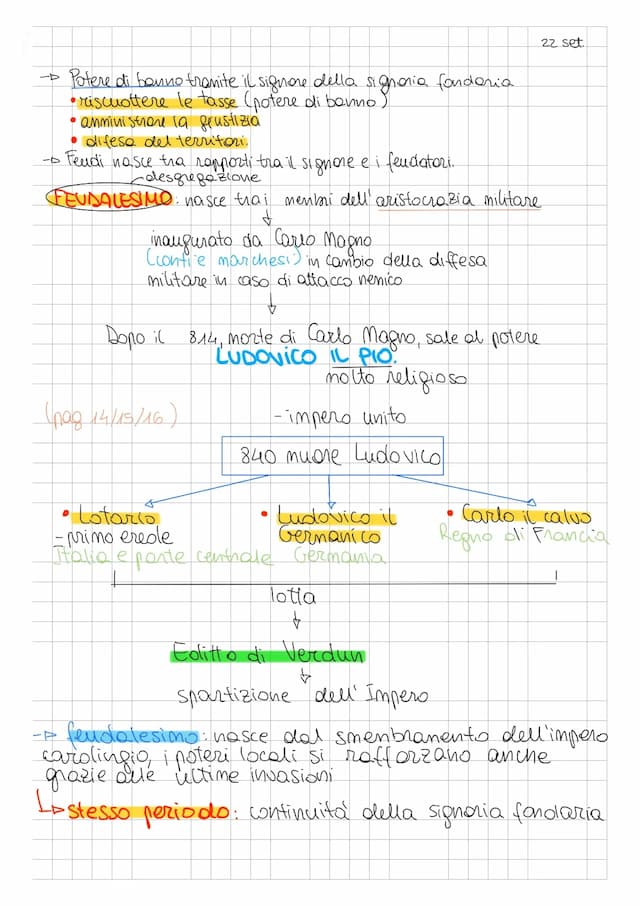 22 set.
→ Potere di banno tramite il signore della signoria fondaria
• riscuottere le tasse (potere di banno)
• amministrare la giustizia
• difesa del territori.
→ Feudi nasce tra rapporti tra il signore e i feudatari.
desgregazione
FEUDALESIMO: nasce tra i membri dell'aristocrazia militare
↓
inaugurato da Carlo Magno
(conti e marchesi) in cambio della diffesa
militare in caso di attacco nemico
↓
Dopo il 814, morte di Carlo Magno, sale al potere
LUDOVICO IL PIO.
molto religioso
(pag 14/15/16)
- impero unito
840 muore Ludovico
• Lotario
- primo erede
Italia e parte centrale
• Ludovico il
Germanico
Germania
• Carlo il calvo
Regno di Francia
lotta
↓
Editto di Verdun
↓
spartizione dell'Impero
→ feudalesimo: nasce dal smembramento dell'impero
carolingio, i poteri locali si rafforzano anche
grazie alle ultime invasioni
↳ stesso periodo: continuità della signoria fondaria